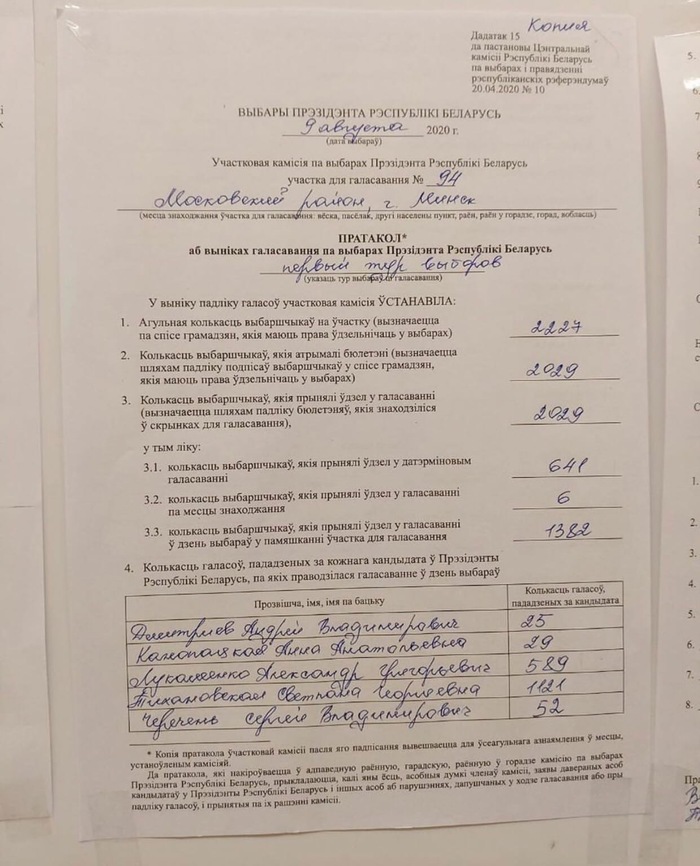 Копия
Дадатак 15
да пастановы Цэнтральнай
камісіі Рэспублікі Беларусь
па выбарах і правядзенні
рэспубліканскіх рэферэндумаў
20.04.2020 № 10
ВЫБАРЫ ПРЭЗІДЭНТА РЭСПУБЛІКІ БЕЛАРУСЬ
9 августа 2020 г.
(дата выбараў)
Участковая камісія па выбарах Прэзідэнта Рэспублікі Беларусь
участка для галасавання № 94
Московский район, г. Минск
(месца знаходжання ўчастка для галасавання: вёска, пасёлак, другі населены пункт, раён, раён у горадзе, горад, вобласць)
ПРАТАКОЛ*
аб выніках галасавання па выбарах Прэзідэнта Рэспублікі Беларусь
первый тур выборов
(указаць тур выбараў галасавання)
У выніку падліку галасоў участковая камісія ЎСТАНАВІЛА:
1. Агульная колькасць выбаршчыкаў на ўчастку (вызначаецца
па спісе грамадзян, якія маюць права ўдзельнічаць у выбарах) 2227
2. Колькасць выбаршчыкаў, якія атрымалі бюлетэні (вызначаецца
шляхам падліку подпісаў выбаршчыкаў у спісе грамадзян,
якія маюць права ўдзельнічаць у выбарах) 2029
3. Колькасць выбаршчыкаў, якія прынялі ўдзел у галасаванні
(вызначаецца шляхам падліку бюлетэняў, якія знаходзіліся
ў скрынках для галасавання), 2029
у тым ліку:
3.1. колькасць выбаршчыкаў, якія прынялі ўдзел у датэрміновым
галасаванні 641
3.2. колькасць выбаршчыкаў, якія прынялі ўдзел у галасаванні
па месцы знаходжання 6
3.3. колькасць выбаршчыкаў, якія прынялі ўдзел у галасаванні
ў дзень выбараў у памяшканні ўчастка для галасавання 1382
4. Колькасць галасоў, пададзеных за кожнага кандыдата ў Прэзідэнты
Рэспублікі Беларусь, па якіх праводзілася галасаванне ў дзень выбараў
Прозвішча, імя, імя па бацьку Колькасць галасоў,
пададзеных за кандыдата
Дмитриев Андрей Владимирович 25
Канопацкая Анна Анатольевна 29
Лукашенко Александр Григорьевич 589
Тихановская Светлана Георгиевна 1121
Черечень Сергей Владимирович 52
* Копія пратакола ўчастковай камісіі пасля яго падпісання вывешваецца для ўсеагульнага азнаямлення ў месцы,
устаноўленым камісіяй.
Да пратакола, які накіроўваецца ў адпаведную раённую, гарадскую, раённую ў горадзе камісію па выбарах
Прэзідэнта Рэспублікі Беларусь, прыкладаюцца, калі яны ёсць, асобныя думкі членаў камісіі, заявы давераных асоб
кандыдатаў у Прэзідэнты Рэспублікі Беларусь і іншых асоб аб парушэннях, дапушчаных у ходзе галасавання або пры
падліку галасоў, і прынятыя па іх рашэнні камісіі.